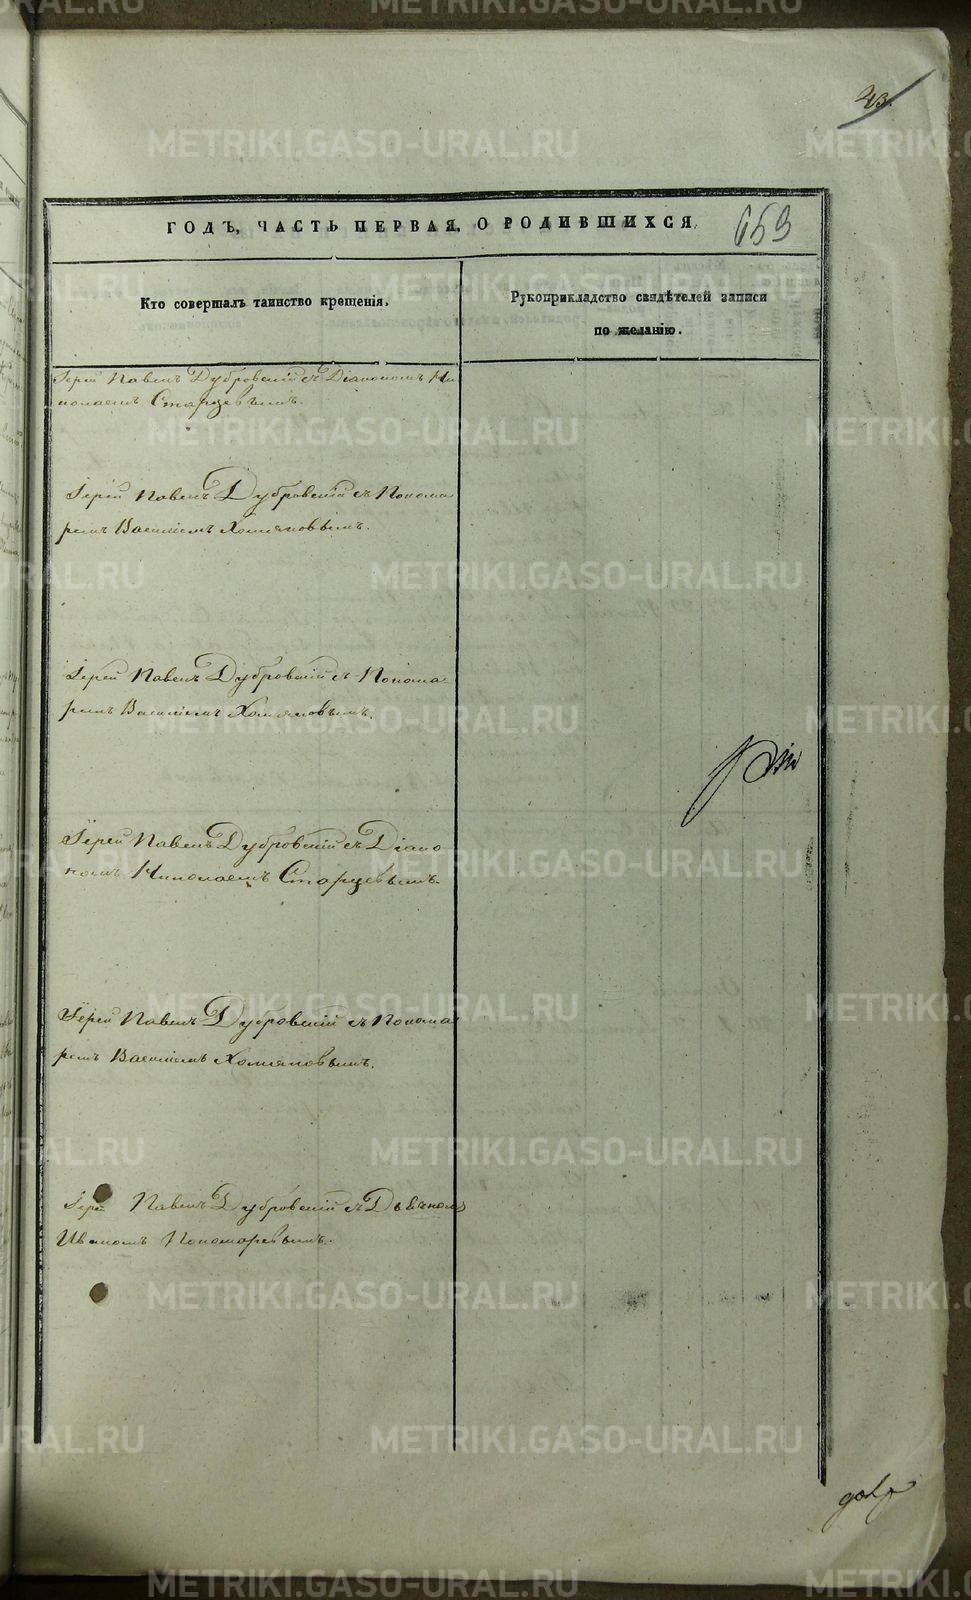 43.
ГОДЪ, ЧАСТЬ ПЕРВАЯ, О РОДИВШИХСЯ
659
Кто совершалъ таинство крещенія.
Рукоприкладство свидѣтелей записи
по желанію.
Іерей Павелъ Дубровскій съ Діакономъ Ни
колаемъ Старцевымъ.
Іерей Павелъ Дубровскій съ Понома
ремъ Василіемъ Хомяковымъ.
Іерей Павелъ Дубровскій съ Понома
ремъ Василіемъ Хомяковымъ.
Іерей Павелъ Дубровскій съ Діако
номъ Николаемъ Старцевымъ.
Іерей Павелъ Дубровскій съ Понома
ремъ Василіемъ Хомяковымъ.
Іерей Павелъ Дубровскій съ Дьячкомъ
Иваномъ Пономаревымъ.
METRIKI.GASO-URAL.RU